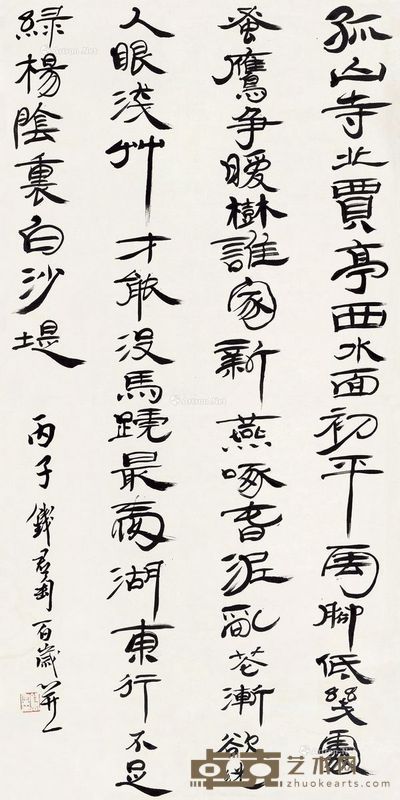 孤山寺北賈亭西水面初平雲腳低幾處
蚤鷹争曖樹誰家新燕啄春泥亂花漸欲迷
人眼淺艸才能没馬蹄最愛湖東行不足
綠楊陰裏白沙堤
丙子 錢君匋百歲開一
卓克艺术网
zhuokearts.com